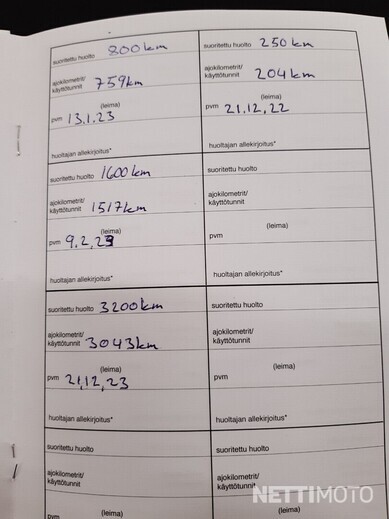 suoritettu huolto 800 km
ajokilometrit/
käyttötunnit 759km
(leima)
pvm 13.1.23
huoltajan allekirjoitus*
suoritettu huolto 250 km
ajokilometrit/
käyttötunnit 204km
(leima)
pvm 21.12.22
huoltajan allekirjoitus*
suoritettu huolto 1600km
ajokilometrit/
käyttötunnit 1517km
(leima)
pvm 9.2.23
huoltajan allekirjoitus*
suoritettu huolto
ajokilometrit/
käyttötunnit
(leima)
pvm
huoltajan allekirjoitus*
suoritettu huolto 3200km
ajokilometrit/
käyttötunnit 3043km
(leima)
pvm 21.12.23
huoltajan allekirjoitus*
suoritettu huolto
ajokilometrit/
käyttötunnit
(leima)
pvm
huoltajan allekirjoitus*
suoritettu huolto
ajokilometrit/
käyttötunnit
(leima)
suoritettu huolto
ajokilometrit/
käyttötunnit
(leima)
NETTIMOTO